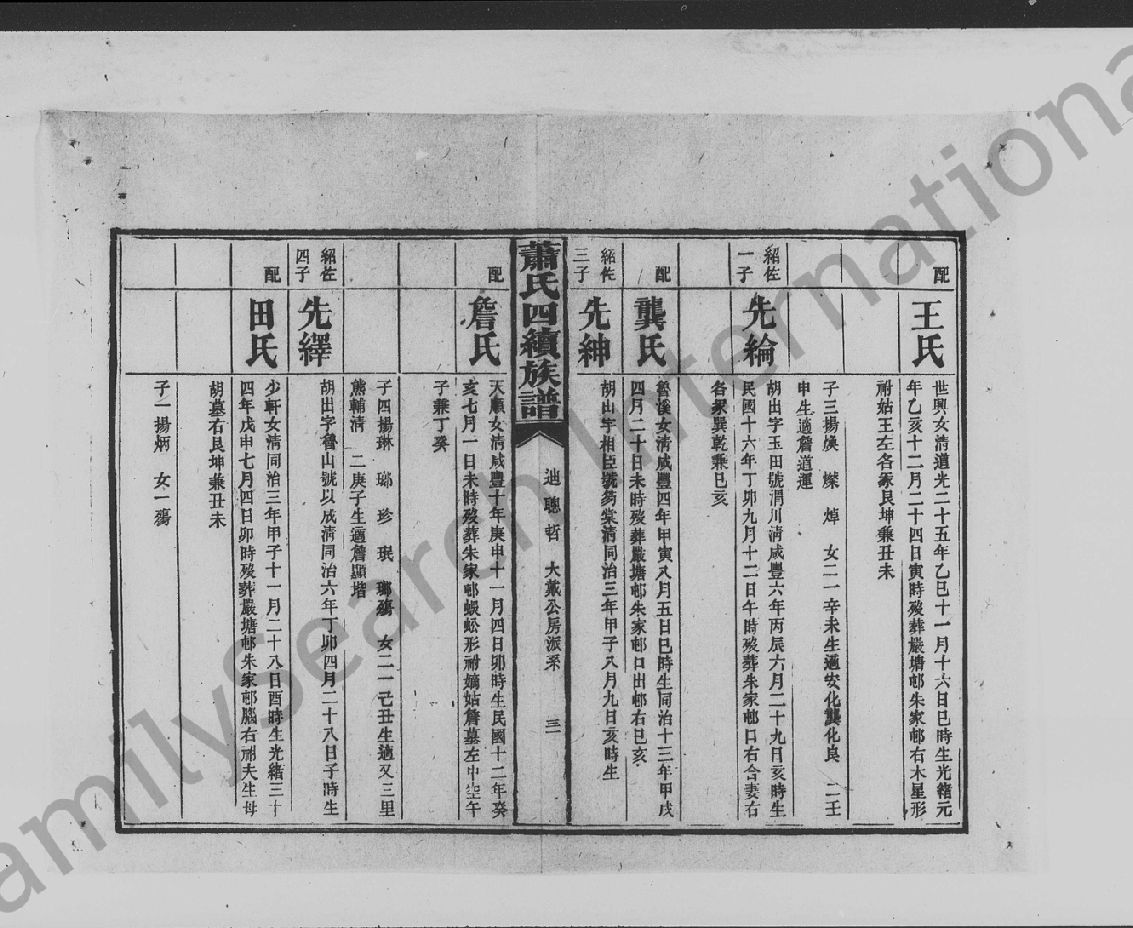 配
王氏
世興女清道光二十五年乙巳十一月十六日巳時生光緒元
年乙亥十二月二十四日寅時歿葬嚴塘邨朱家邨右木星形
祔姑王左各冢艮坤兼丑未
子三揚煥 燦 焯 女二一辛未生適安化龔化良 二壬
申生適詹道運
紹佐
一子
先綸
胡出字玉田號渭川清咸豐六年丙辰六月二十九日亥時生
民國十六年丁卯九月十二日午時歿葬朱家邨口右合妻右
各冢巽乾兼巳亥
配
龔氏
魯溪女清咸豐四年甲寅八月五日巳時生同治十三年甲戌
四月二十日未時歿葬嚴塘邨朱家邨口出邨右巳亥
紹佐
三子
先紳
胡出字相臣號葯棠清同治三年甲子八月九日亥時生
蕭氏四續族譜
迪聰哲 大戴公房派系 三
配
詹氏
天順女清咸豐十年庚申十一月四日卯時生民國十二年癸
亥七月一日未時歿葬朱家邨蜈蚣形祔嫡姑詹墓左中空午
子兼丁癸
子四揚琳 瑯 珍 珉 瑯殤 女二一己丑生適又三里
熊輔清 二庚子生適詹顯堦
紹佐
四子
先繹
胡出字魯山號以成清同治六年丁卯四月二十八日子時生
配
田氏
少軒女清同治三年甲子十一月二十八日酉時生光緒三十
四年戊申七月四日卯時歿葬嚴塘邨朱家邨腦右祔夫生母
胡墓右艮坤兼丑未
子一揚炳 女一殤
FamilySearch International